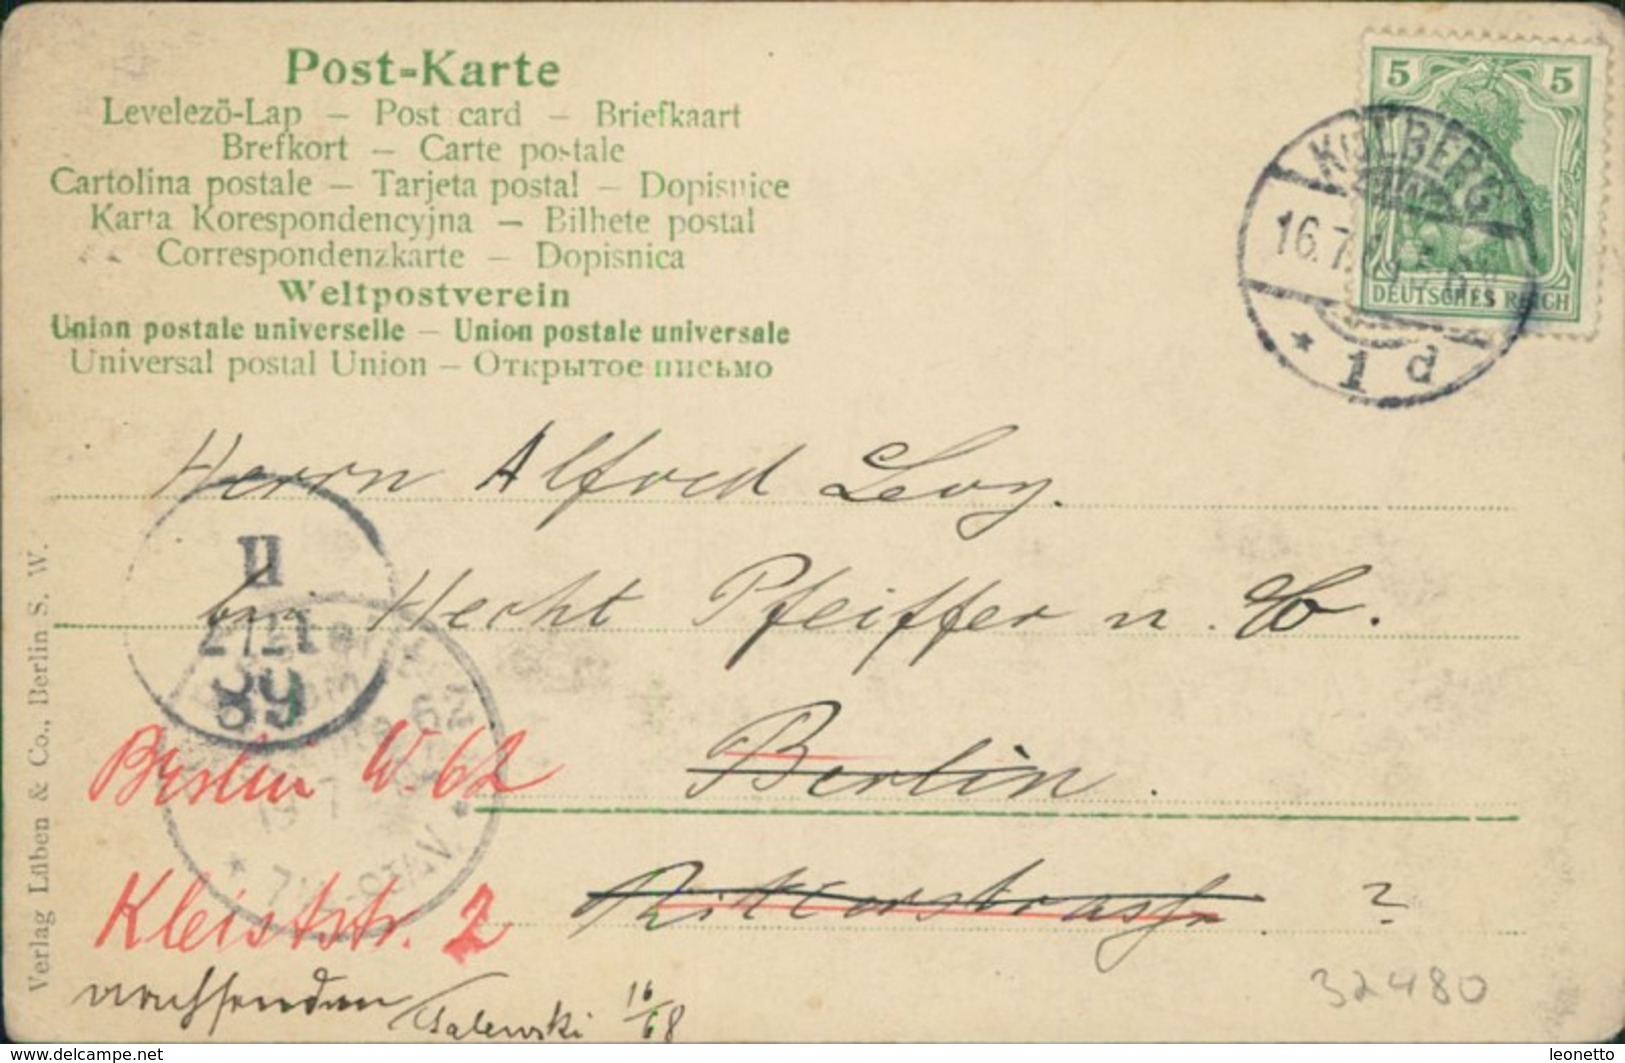 Post-Karte
Levelezö-Lap – Post card – Briefkaart
Brefkort – Carte postale
Cartolina postale – Tarjeta postal – Dopisnice
Karta Korespondencyjna – Bilhete postal
Correspondenzkarte – Dopisnica
Weltpostverein
Union postale universelle – Union postale universale
Universal postal Union – Открытое письмо
5 5
DEUTSCHES REICH
KOLBERG
16.7.
* 1 d
Herrn Alfred Levy.
bei Hecht Pfeiffer u. Co.
Berlin.
Ritterstrasse. ?
Berlin W. 62
Kleiststr. 2
nachsenden
Salewski 16/68
32480
Verlag Lüben & Co., Berlin S. W.
leonetto
www.delcampe.net